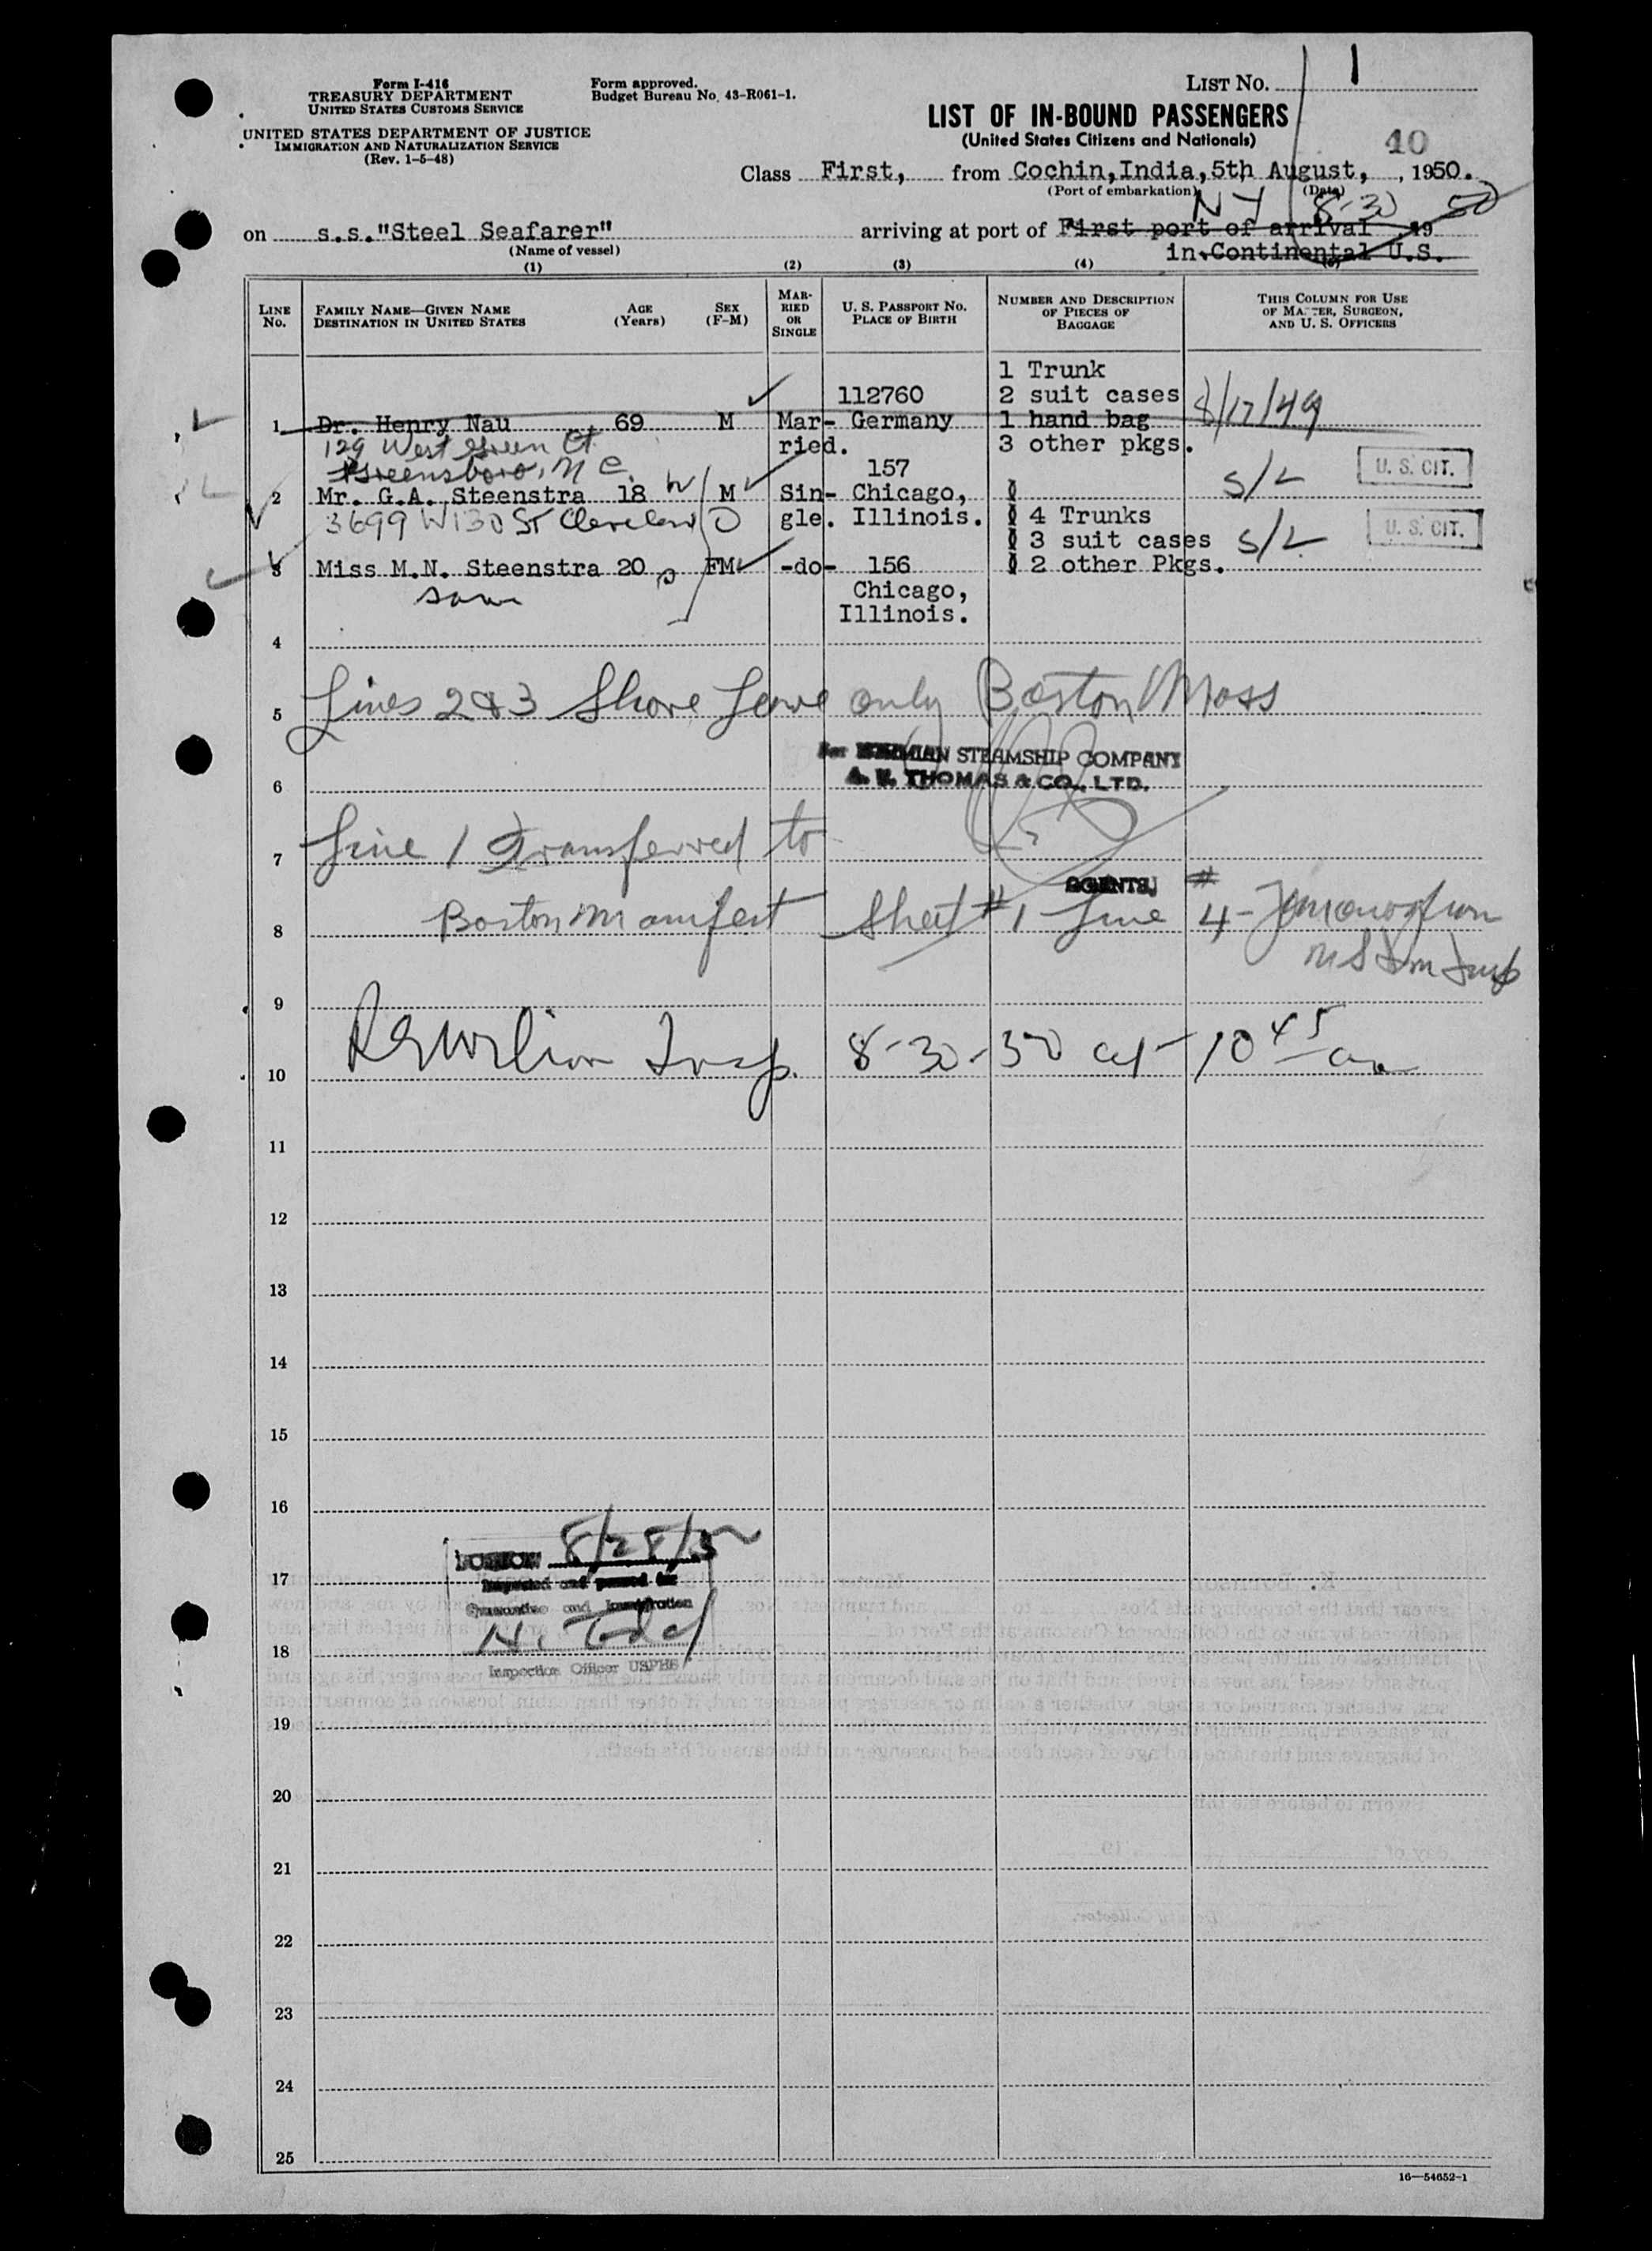 Form I-416
TREASURY DEPARTMENT
UNITED STATES CUSTOMS SERVICE
UNITED STATES DEPARTMENT OF JUSTICE
IMMIGRATION AND NATURALIZATION SERVICE
(Rev. 1-5-48)
Form approved.
Budget Bureau No. 43-R061-1.
LIST NO. 1
LIST OF IN-BOUND PASSENGERS
(United States Citizens and Nationals)
10
Class First, from Cochin,India,5th August, , 1950.
(Port of embarkation) (Date)
NY 8-30 50
on s.s."Steel Seafarer" arriving at port of First port of arrival 19
(Name of vessel) in Continental U.S.
(1) (2) (3) (4) (5)
LINE No.
FAMILY NAME—GIVEN NAME
DESTINATION IN UNITED STATES
AGE (Years)
SEX (F-M)
MARRIED OR SINGLE
U. S. PASSPORT NO.
PLACE OF BIRTH
NUMBER AND DESCRIPTION OF PIECES OF BAGGAGE
THIS COLUMN FOR USE OF MASTER, SURGEON, AND U. S. OFFICERS
1 Trunk
112760 2 suit cases
1 Dr. Henry Nau 69 M Mar- Germany 1 hand bag 8/17/49
129 West Green Ct ried. 3 other pkgs.
Greensboro, N C. 157 U. S. CIT.
2 Mr. G.A. Steenstra 18 M Sin- Chicago, S/L
3699 W 130 ST Cleveland O gle. Illinois. 4 Trunks
3 suit cases S/L U. S. CIT.
3 Miss M.N. Steenstra 20 FM -do- 156 2 other Pkgs.
same Chicago,
Illinois.
4
5 Lines 2&3 Shore Leave only Boston Mass
For ISTHMIAN STEAMSHIP COMPANY
6 A. V. THOMAS & CO., LTD.
7 Line 1 Transferred to
AGENTS
8 Boston Manifest Sheet #1 Line #4
9
10 Insp. 8-30-50 at 10 45 am
11
12
13
14
15
16
BOSTON 8/28/50
17 Inspected and passed for
Quarantine and Immigration
18
Inspection Officer USPHS
19
20
21
22
23
24
25
16—54652-1